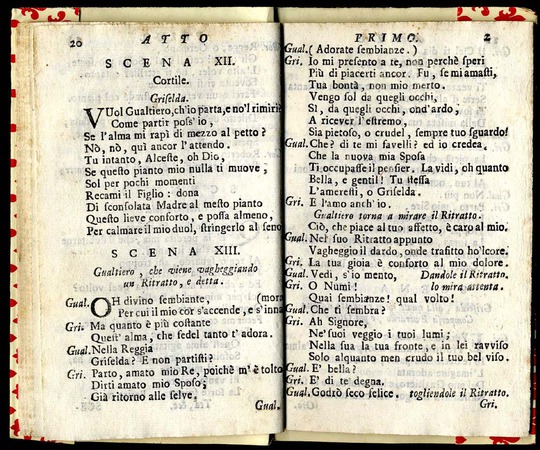 20 ATTO
SCENA XII.
Cortile.
Griselda.
VUol Gualtiero, ch'io parta, e no'l rimiri?
Come partir poss'io,
Se l'alma mi rapì di mezzo al petto?
Nò, nò, quì ancor l'attendo.
Tu intanto, Alceste, oh Dio,
Se questo pianto mio nulla ti muove,
Sol per pochi momenti
Recami il Figlio: dona
Di sconsolata Madre al mesto pianto
Questo lieve conforto, e possa almeno,
Per calmare il mio duol, stringerlo al seno
SCENA XIII.
Gualtiero, che viene vagheggiando
un Ritratto, e detta.
Gual. OH divino sembiante, (mora
Per cui il mio cor s'accende, e s'inna-
Gri. Ma quanto è più costante
Quest'alma, che fedel tanto t'adora.
Gual. Nella Reggia
Griselda? E non partisti?
Gri. Parto, amato mio Re, poichè m'è tolto
Dirti amato mio Sposo;
Già ritorno alle selve.
Gual.
PRIMO. 2
Gual. (Adorate sembianze.)
Gri. Io mi presento a te, non perchè speri
Più di piacerti ancor. Fu, se mi amasti,
Tua bontà, non mio merto.
Vengo sol da quegli occhi,
Sì, da quegli occhi, ond'ardo,
A ricever l'estremo,
Sia pietoso, o crudel, sempre tuo sguardo!
Gual. Che? di te mi favelli? ed io credea,
Che la nuova mia Sposa
Ti occupasse il pensier. La vidi, oh quanto
Bella, e gentil! Tu stessa
L'ameresti, o Griselda.
Gri. E l'amo anch'io.
Gualtiero torna a mirare il Ritratto.
Ciò, che piace al tuo affetto, è caro al mio.
Gual. Nel suo Ritratto appunto
Vagheggio il dardo, onde trafitto ho'l core.
Gri. La tua gioia è conforto al mio dolore.
Gual. Vedi, s'io mento, Dandole il Ritratto.
Gri. O Numi! lo mira attenta.
Quai sembianze! qual volto!
Gual. Che ti sembra?
Gri. Ah Signore,
Ne'suoi veggio i tuoi lumi;
Nella sua la tua fronte, e in lei ravviso
Solo alquanto men crudo il tuo bel viso.
Gual. E' bella?
Gri. E' di te degna.
Gual. Godrò seco felice. togliendole il Ritratto.
Gri.